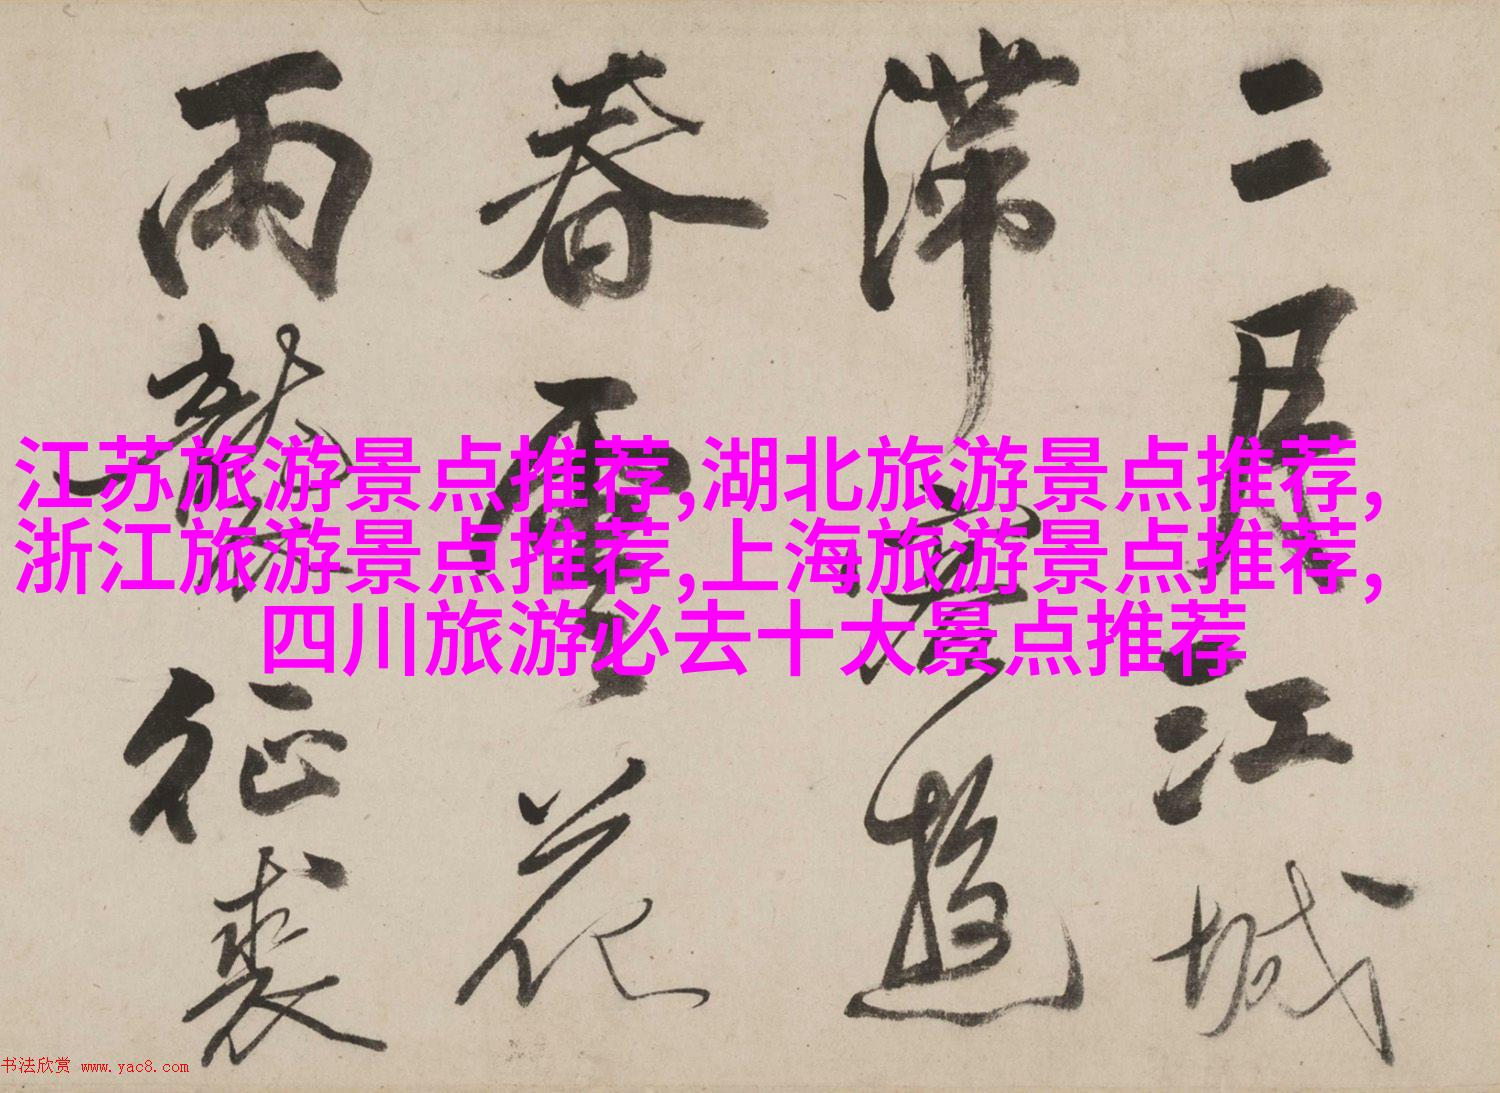 二月江城
滞客遊
春花
雨征裘
江苏旅游景点推荐,湖北旅游景点推荐,
浙江旅游景点推荐,上海旅游景点推荐,
四川旅游必去十大景点推荐
书法欣赏 www.yac8.com